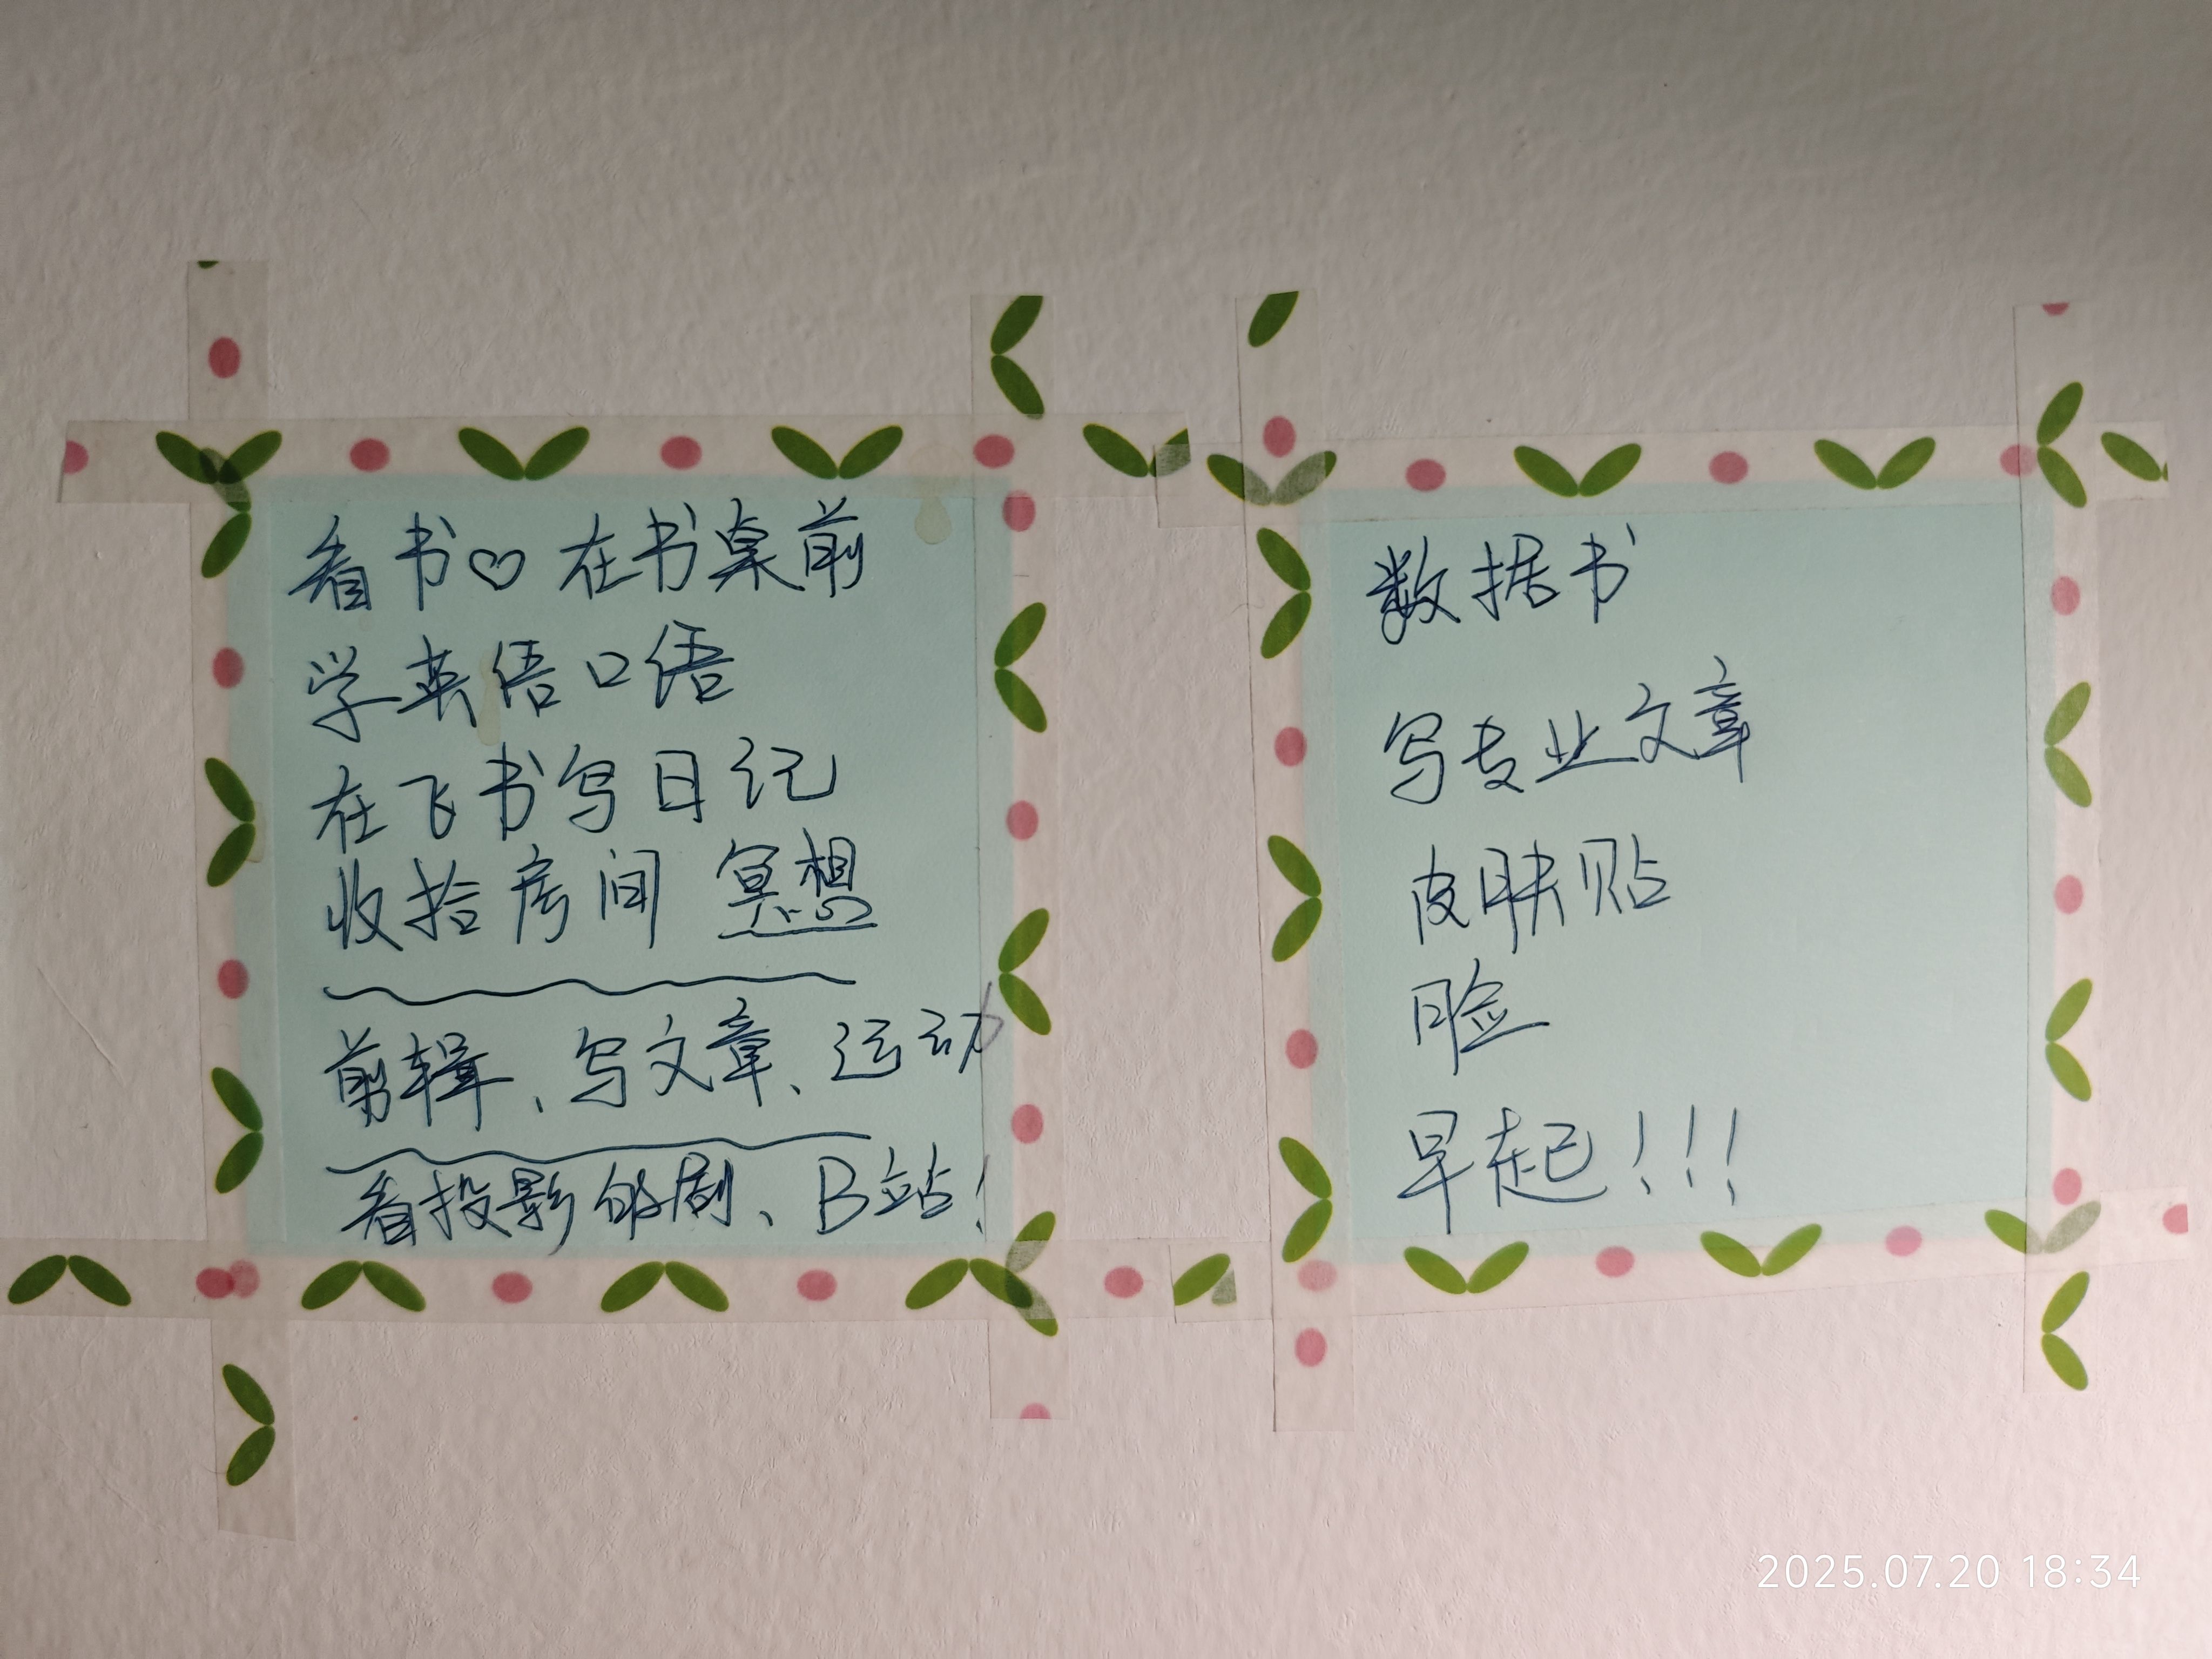 看书♡ 在书桌前
学英语口语
在飞书写日记
收拾房间 冥想
剪辑、写文章、运动
看投影的剧、B站！
数据书
写专业文章
皮肤贴
脸
早起！！！
2025.07.20 18:34